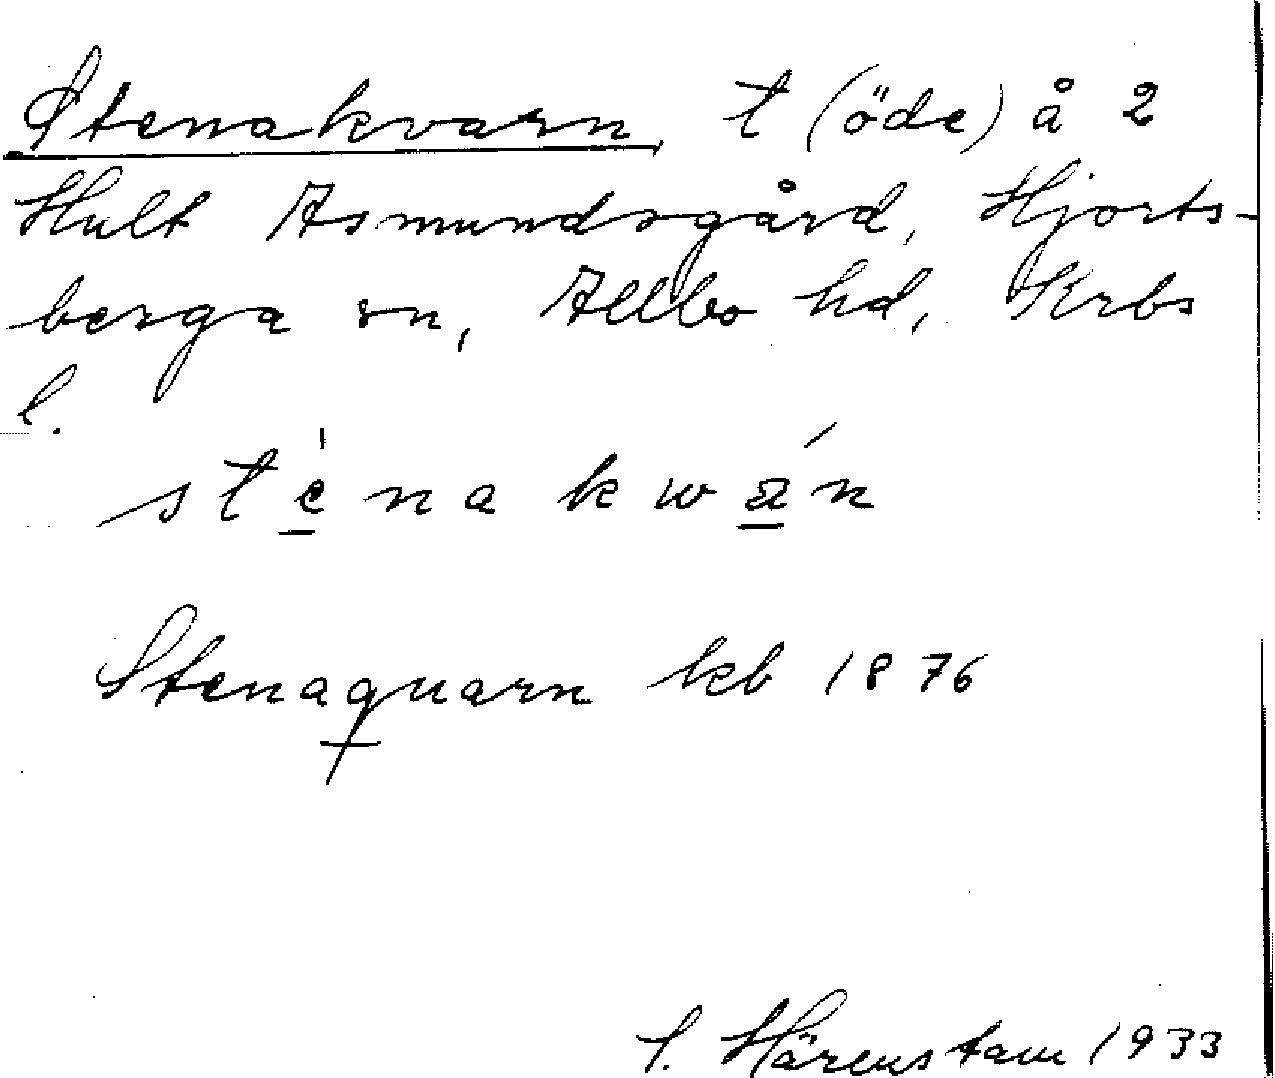 Stenakvarn, t (öde) å 2
Hult Asmundsgård, Hjorts-
berga sn, Allbo hd, Krbs
l.
sténakwán
Stenaquarn kb 1876
Härenstam 1933